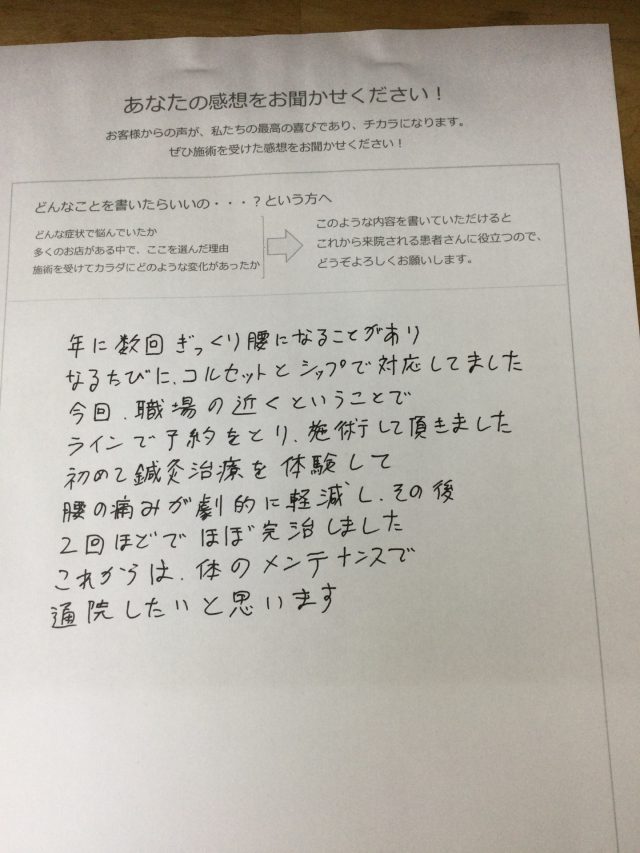 あなたの感想をお聞かせください！
お客様からの声が、私たちの最高の喜びであり、チカラになります。
ぜひ施術を受けた感想をお聞かせください！
どんなことを書いたらいいの・・・？という方へ
どんな症状で悩んでいたか
多くのお店がある中で、ここを選んだ理由
施術を受けてカラダにどのような変化があったか
このような内容を書いていただけると
これから来院される患者さんに役立つので、
どうぞよろしくお願いします。
年に数回ぎっくり腰になることがあり
なるたびに、コルセットとシップで対応してました
今回、職場の近くということで
ラインで予約をとり、施術して頂きました
初めて鍼灸治療を体験して
腰の痛みが劇的に軽減し、その後
2回ほどでほぼ完治しました
これからは、体のメンテナンスで
通院したいと思います